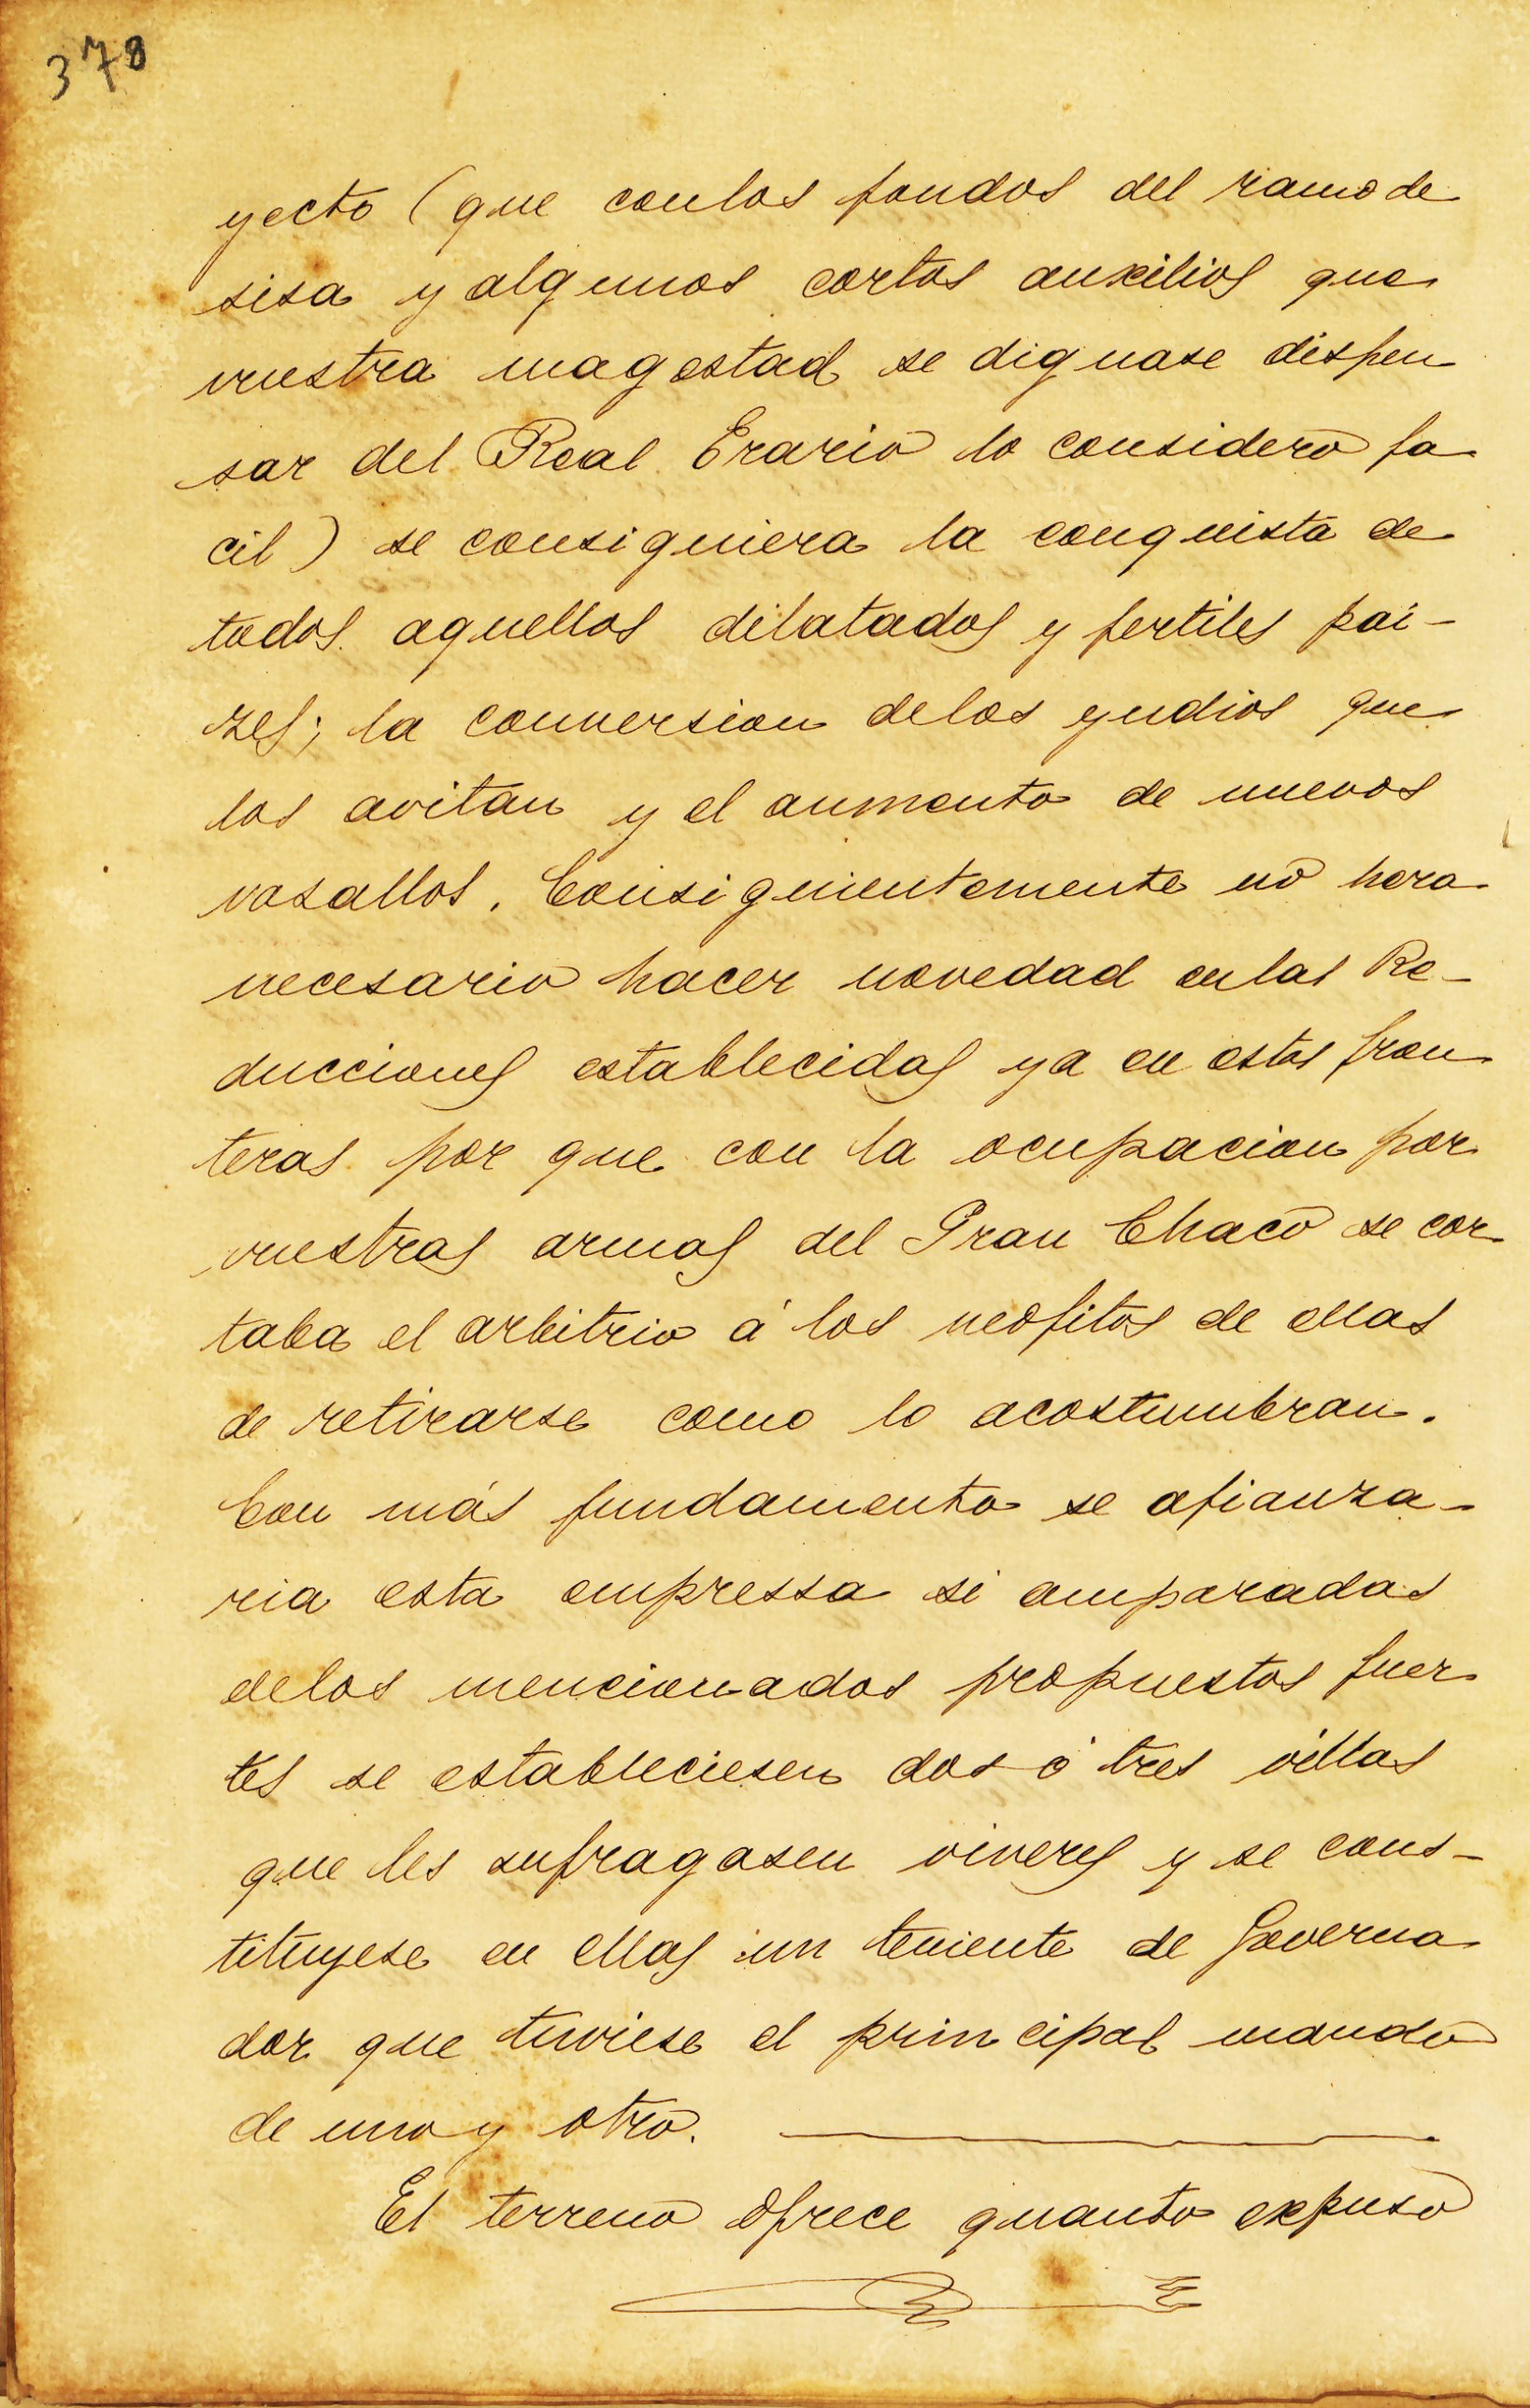 378
yecto (que conlos fondos del ramo de
sisa y algunos cortos auxilios que
vuestra magestad se dignase dispen
sar del Real Erario lo considero fa
cil) se consiguiera la conquista de
todos aquellos dilatados y fertiles pai-
zes; la conversion delos yndios que
los avitan y el aumento de nuevos
vasallos. Consiguientemente no hera
necesario hacer novedad enlas Re-
ducciones establecidas ya en estas fron
teras por que con la ocupacion por
vuestras armas del Gran Chaco se cor
taba el arbitrio á los neofitos de ellas
de retirarse como lo acostumbran.
Con más fundamento se afianza-
ria esta empressa si amparadas
delos mencionados propuestos fuer
tes se estableciesen dos ó tres villas
que les sufragasen viveres y se cons-
tituyese en ellas un teniente de Governa
dor que tuviese el principal mando
de uno y otro.
El terreno ofrece quanto expuso